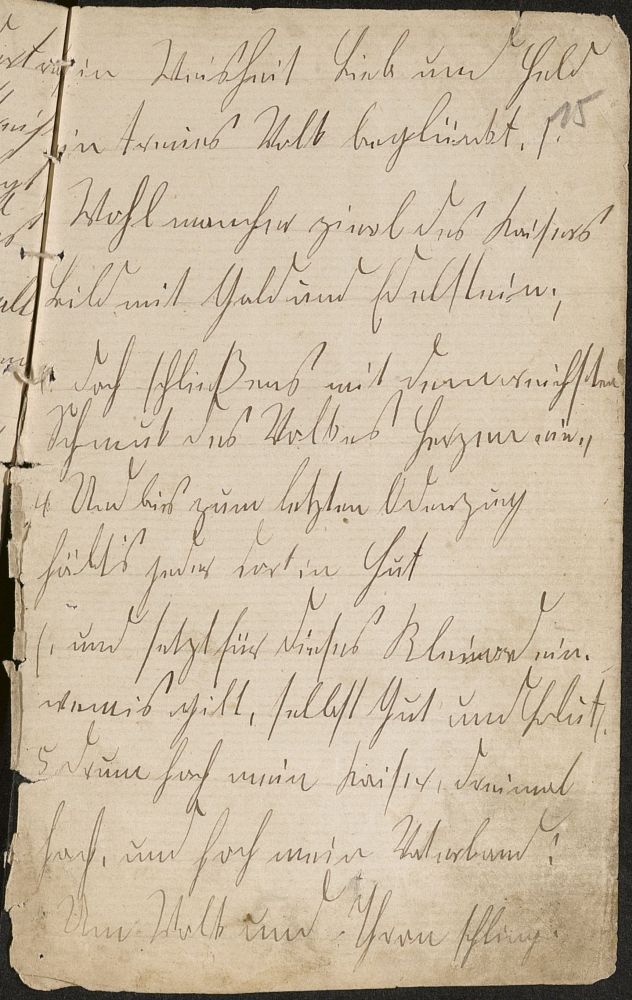 in Weisheit Lieb und Huld
15
in treues Volk beglückt. /.
Wohl mancher zierl des Kaisers
Bild mit Gold und Edelstein;
/. Doch schließens mit dem reichsten
Schmuk des Volkes Herzen ein /.
4 Und bis zum letzten Odemzug
hälts jeder dort in Hut
/. und setzt für dieses Kleinod ein.
wenns gilt, selbst Gut und Blut /.
5 Drum hoch mein Kaiser, dreimal
hoch, und hoch mein Vaterland!
Um Volk und Thron schling